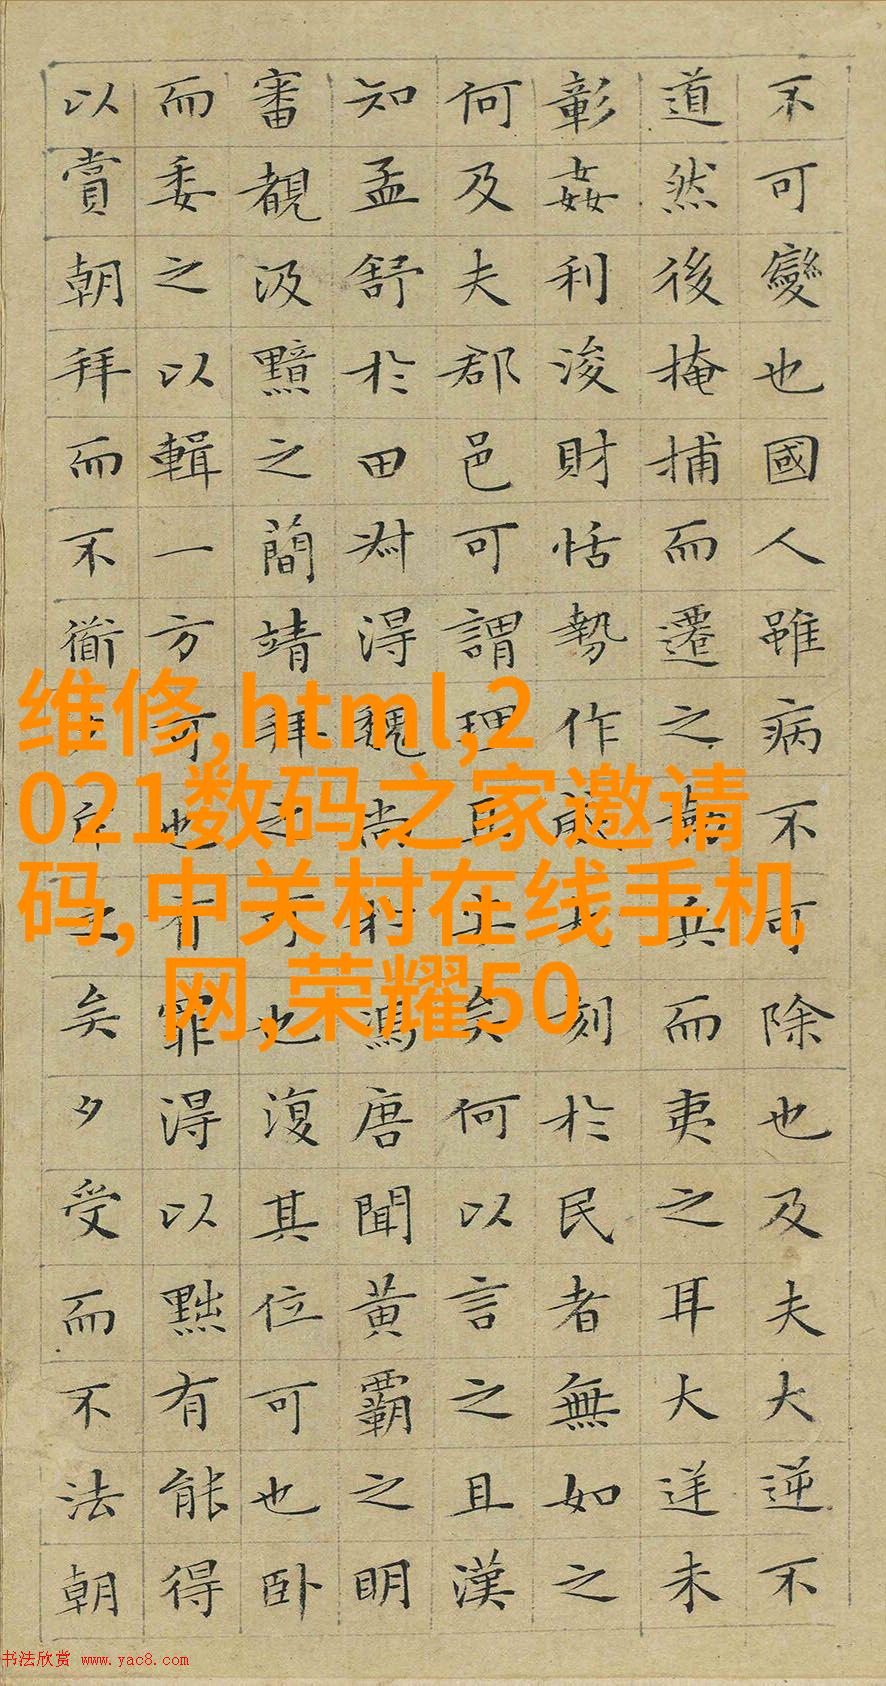 不可變也國人雖病不可除也及夫大逆不
道然後掩捕而遷之勒兵而夷之耳大逆未
彰姦利浚財恬勢作威大刻於民者無如之
何及夫郡邑可謂理且安矣何以言之且漢
知孟舒於田叔得魏尚於馮唐聞黃霸之明
審覩汲黯之簡靖拜之可也復其位可也臥
而委之以輯一方可也有罪得以黜有能得
以賞朝拜而不衜夕斥之矣夕受而不法朝
维修,html,2
021数码之家邀请
码,中关村在线手机
网,荣耀50
书法欣赏 www.yac8.com